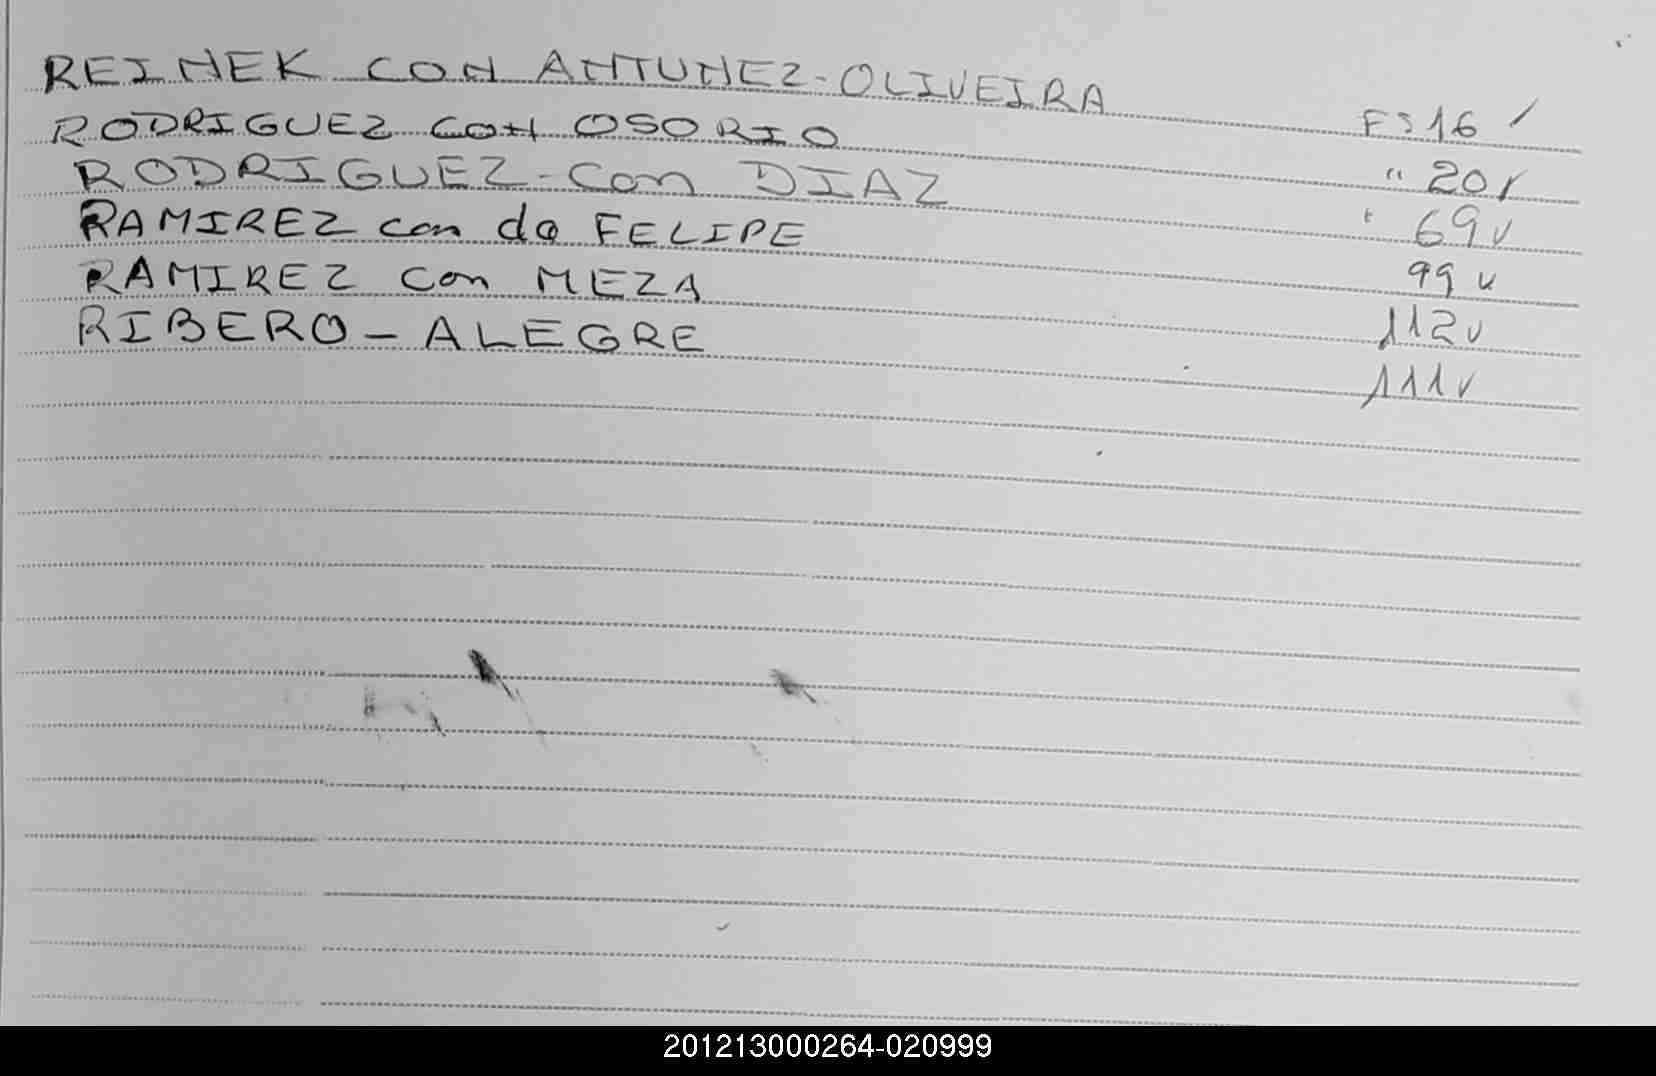 REINEK CON ANTUNEZ-OLIVEIRA FS 16 /
RODRIGUEZ CON OSORIO " 20 /
RODRIGUEZ - Con DIAZ " 69 v
RAMIREZ con de FELIPE 99 v
RAMIREZ Con MEZA 112 v
RIBERO - ALEGRE 111 v
201213000264-020999